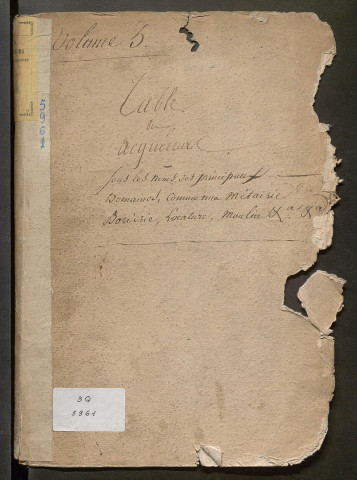 Volume 5.
Table
des
acquéreurs
sous les noms des principaux
Domaines, Comme une Métairie
Borderie, Locature, Moulin &a. &a
5961
3Q
5961